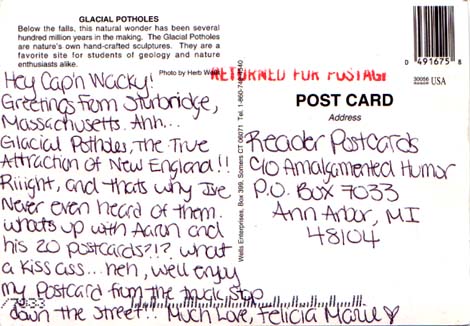 GLACIAL POTHOLES
Below the falls, this natural wonder has been several
hundred million years in the making. The Glacial Potholes
are nature's own hand-crafted sculptures. They are a
favorite site for students of geology and nature
enthusiasts alike.
Photo by Herb
Hey Cap'n Wacky!
Greetings from Sturbridge,
Massachusetts. Ahh...
Glacial Potholes, The True
Attraction of New England!!
Riiight, and thats why I've
Never even heard of them.
whats up with Aaron and
his 20 postcards?!? what
a kiss ass... heh, well enjoy
my Postcard from the truck stop
down the street!! Much Love, Felicia Marie
Wells Enterprises, Box 399, Somers CT 06071 Tel. 1-860-
RETURNED FOR POSTAGE
D 491675 8
30056 USA
POST CARD
Address
Reader Postcards
C/O Amalgamented Humor
P.O. Box 7033
Ann Arbor, MI
48104